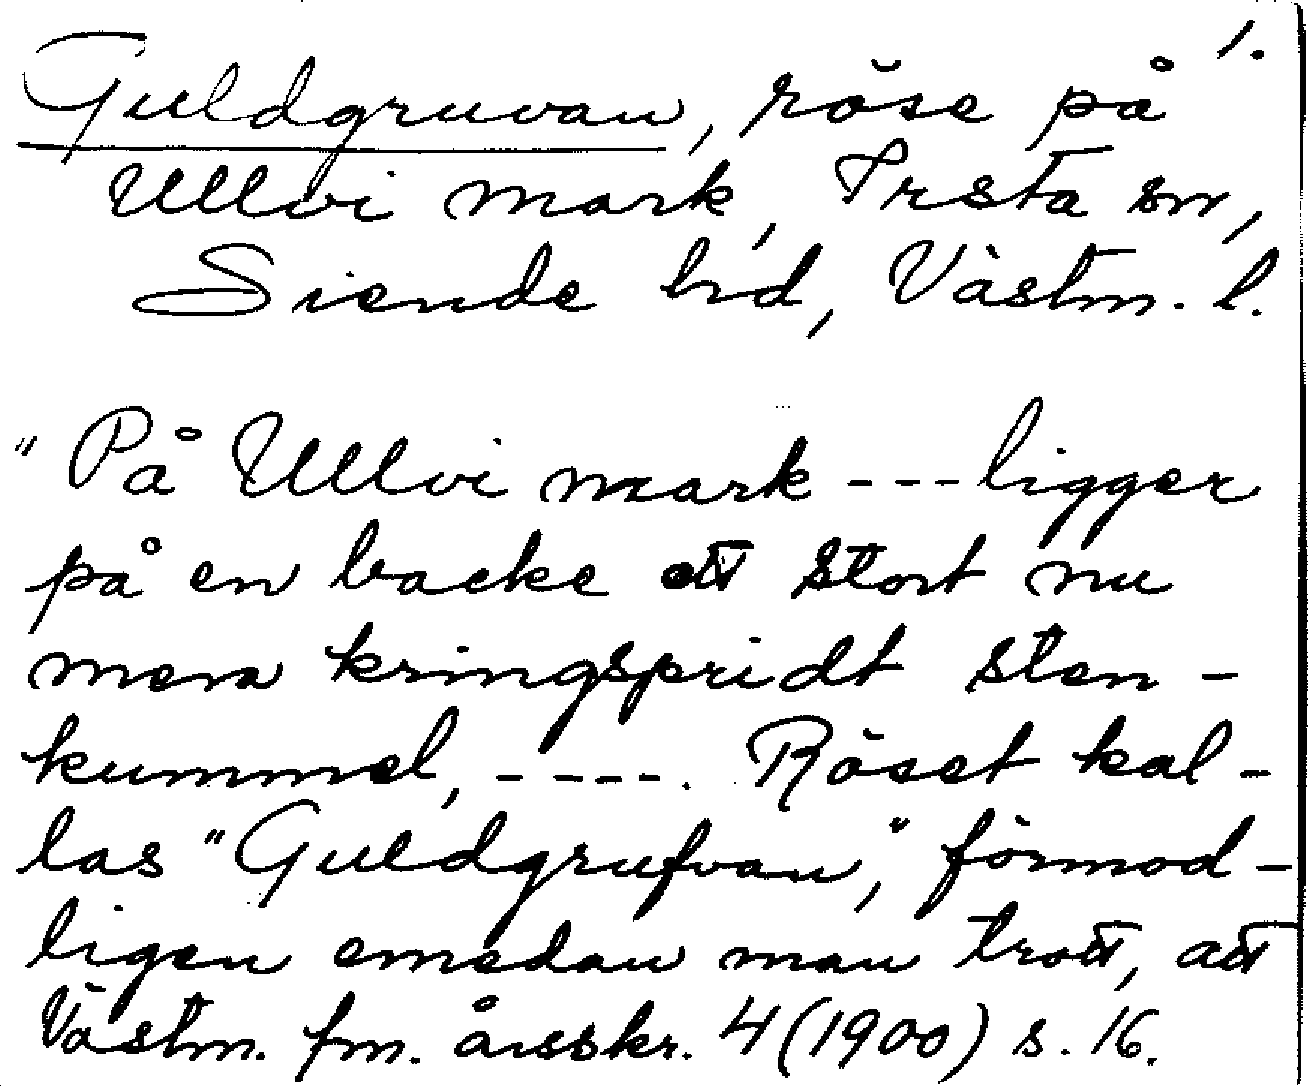 1.
Guldgruvan, röse på
Ullvi mark, Irsta sn,
Siende hd, Västm. l.
"På Ullvi mark --- ligger
på en backe ett stort nu
mera kringspridt sten-
kummel, ----. Röset kal-
las "Guldgrufvan," förmod-
ligen emedan man trott, att
Västm. fm. årsskr. 4 (1900) s. 16.